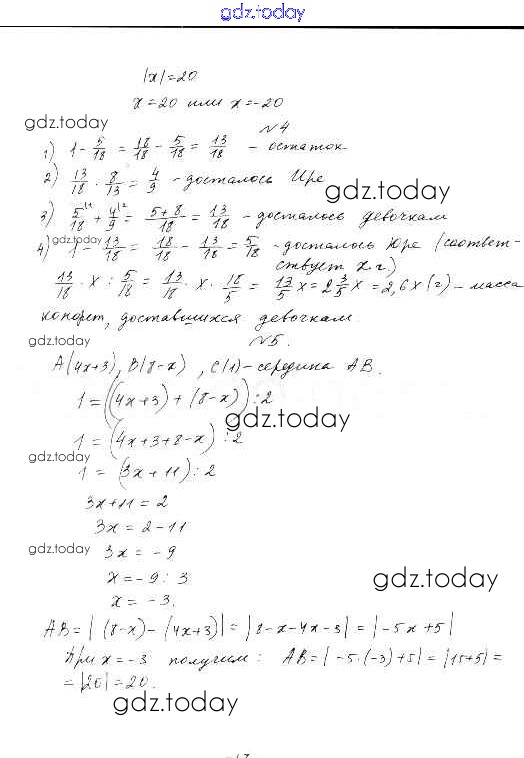 gdz.today
|x|=20
x=20 или x=-20
gdz.today
№4
1) 1-5/18 = 18/18 - 5/18 = 13/18 - остаток
2) 13/18 · 8/13 = 4/9 - досталось Ире
gdz.today
3) 5/18 + 4/9 = (5+8)/18 = 13/18 - досталось девочкам
gdz.today
4) 1 - 13/18 = 18/18 - 13/18 = 5/18 - досталось Юре (соответ-
ствует x г)
13/18 · x : 5/18 = 13/18 · x · 18/5 = 13/5 x = 2 3/5 x = 2,6x (г) - масса
конфет, доставшихся девочкам.
gdz.today
№5.
A(4x+3), B(8-x), C(1)-середина AB.
1 = ((4x+3) + (8-x)) : 2
gdz.today
1 = (4x+3+8-x) : 2
gdz.today
1 = (3x+11) : 2
3x+11 = 2
3x = 2-11
gdz.today
3x = -9
x = -9 : 3
gdz.today
x = -3.
AB = |(8-x)-(4x+3)| = |8-x-4x-3| = |-5x+5|
При x=-3 получим: AB = |-5·(-3)+5| = |15+5| =
= |20| = 20.
gdz.today